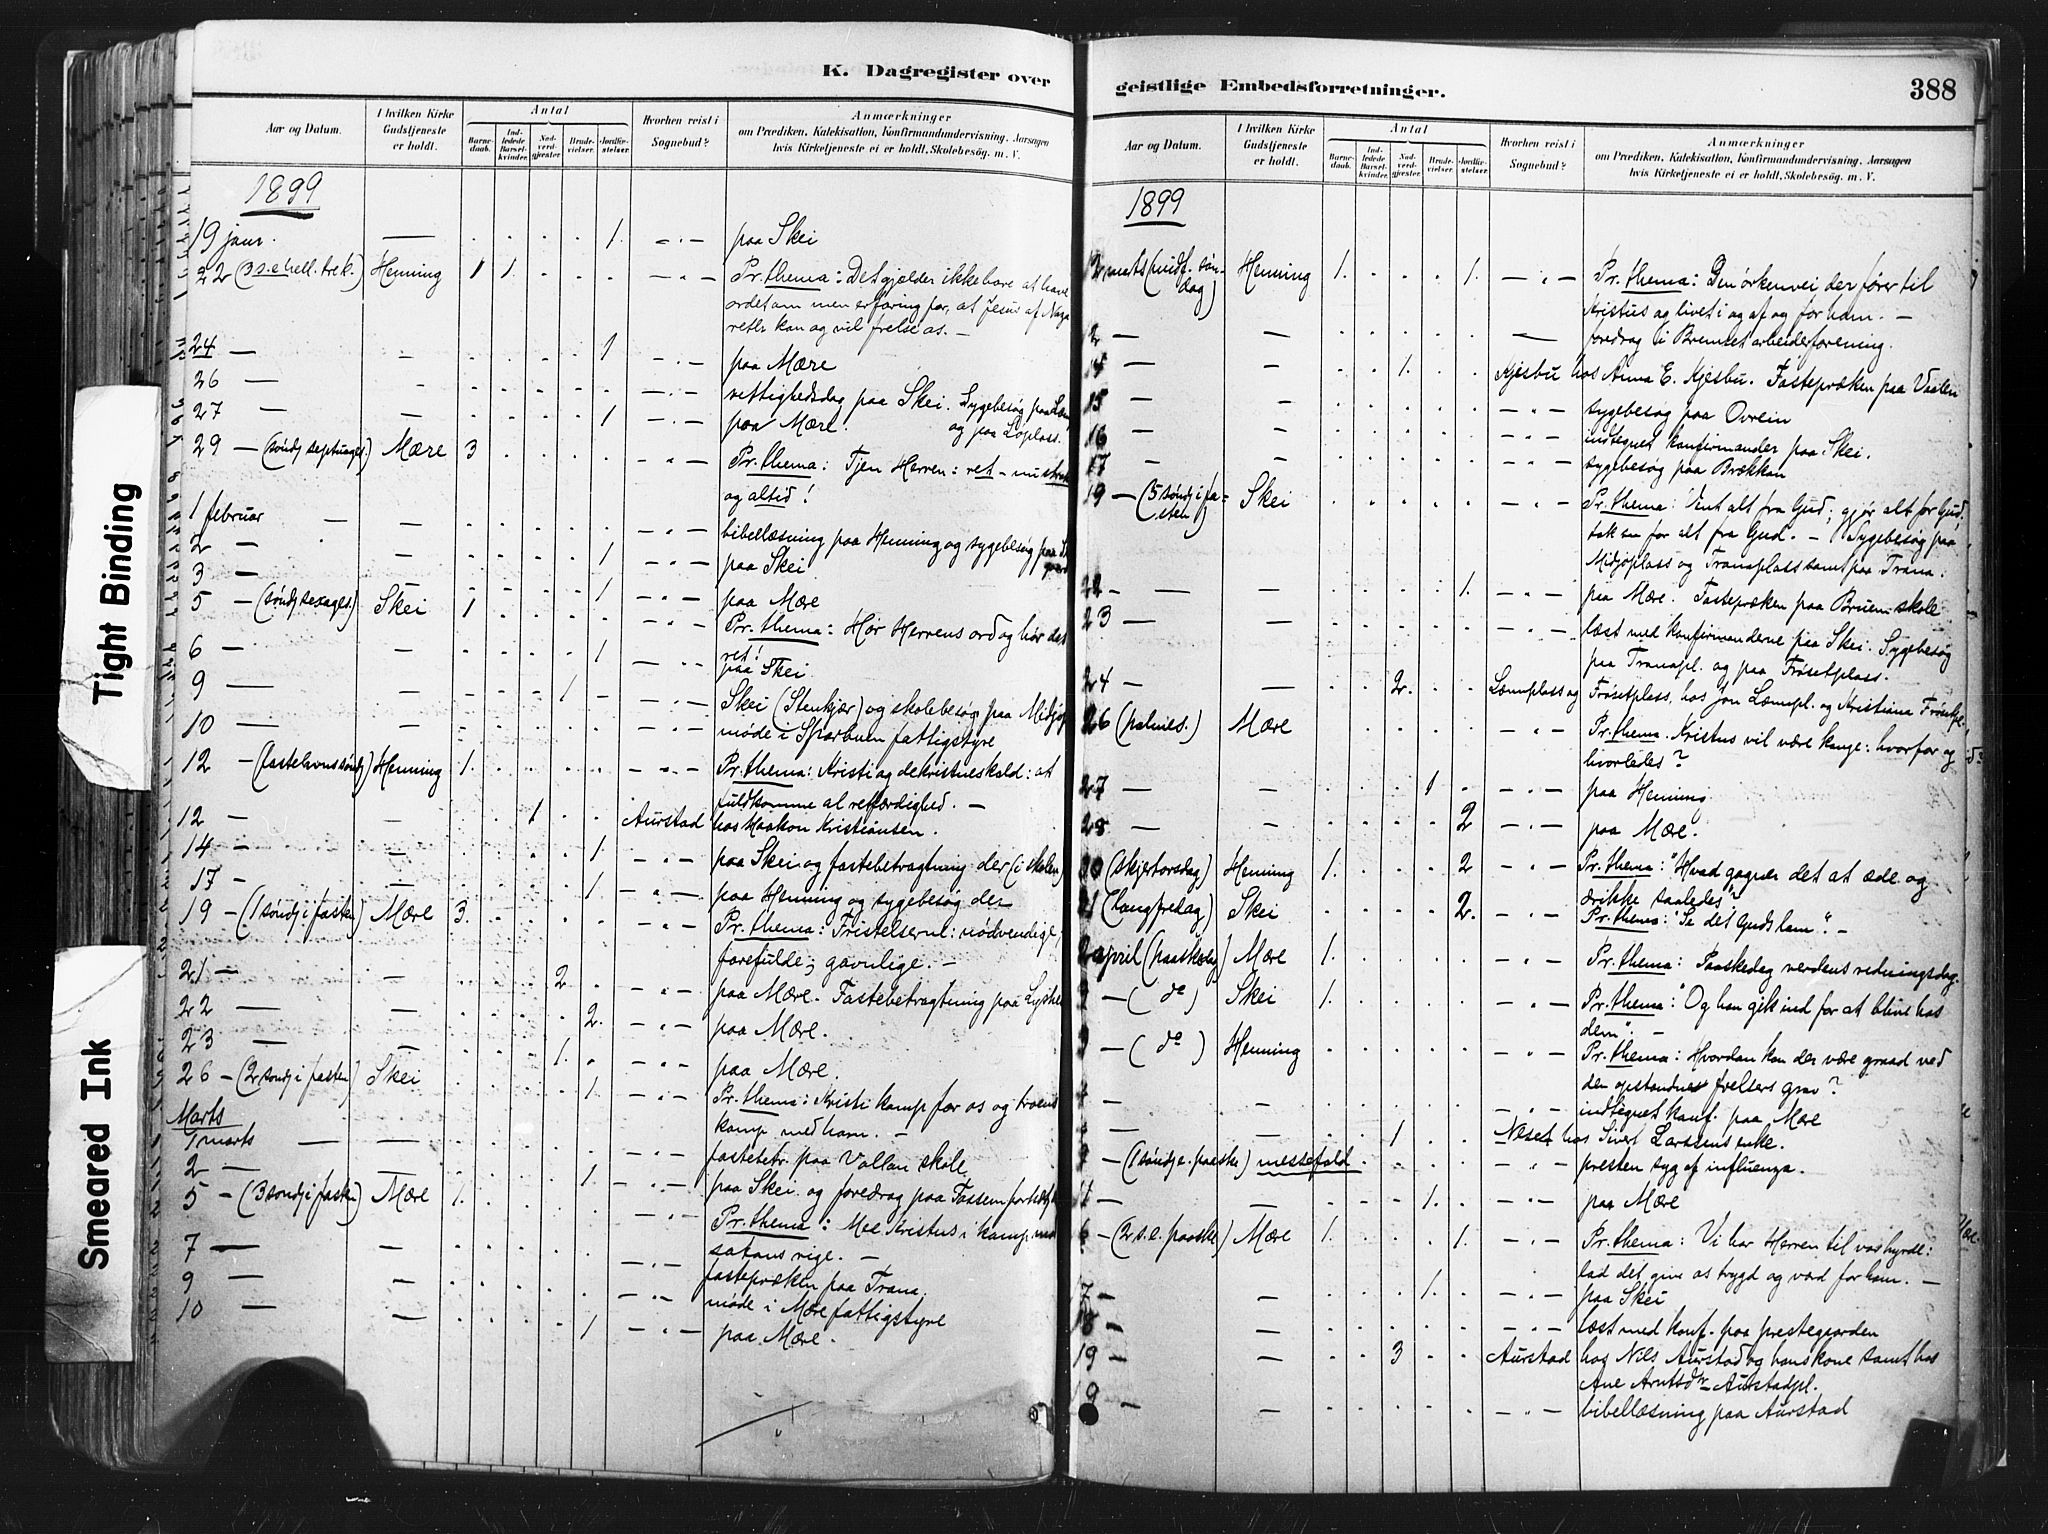 K. Dagregister over
Aar og Datum.
I hvilken Kirke Gudstjeneste er holdt.
Antal
Barnedaab.
Indledede Barselkvinder.
Nadverdgjester.
Brudevielser.
Jordfæstelser.
Hvorhen reist i Sognebud?
Anmærkninger
om Prædiken, Katekisation, Konfirmandundervisning, Aarsagen
hvis Kirketjeneste ei er holdt, Skolebesøg. m. V.
1899
19 janr. — 1. — " — paa Skei
22 (3 s. e. hell. tre k.) Henning 1 1. — " — Pr. thema: Det gjælder ikke bare at have
ordet om men erfaring for, at Jesus af Naza
reth kan og vil frelse os. —
24 — — 1 — " — paa Mære
26 — — — " — rettighedsdag paa Skei. Sygebesøg paa
27 — — 1 — " — paa Mære. og paa Loplass.
29 — (søndj septuages.) Mære 3 — " — Pr. thema: Tjen Herren: ret — nu
og altid!
1 februar — — — " — bibellæsning paa Henning og sygebesøg paa
2 — — 1 — " — paa Skei
3 — — 1 — " — paa Mære
5 — (søndj sexages.) Skei 1 — " — Pr. thema: Hør Herrens ord og hør det
ret!
6 — 1 — " — paa Skei.
9 — — 1 — — " — Skei (Stenkjær) og skolebesøg paa
10 — — — " — møde i Sparbuen fattigstyre
12 — (fastelavnssøndj) Henning 1. — " — Pr. thema: Kristi og de kristnes kald: at
fuldkomme al retfærdighed. —
12 — — 1 Aurstad hos Haakon Kristiansen.
14 — — 1. — " — paa Skei og fastebetragtning der (i skolen)
17 — — 1 — " — paa Henning og sygebesøg der
19 — (1 søndj i fasten) Mære 3. — " — Pr. thema: Fristelserne: nødvendige,
farefulde, gavnlige. —
21 — — 2 — " — paa Mære. Fastebetragtning paa
22 — — 2. — " — paa Mære.
23 — — 1. — " — paa Mære.
26 — (2 søndj i fasten) Skei 1. — " — Pr. thema: Kristi kamp for os og troens
kamp med ham. —
Marts
1 marts — — — " — fastebetr. paa Vollan skole
2 — — 1. — " — paa Skei. og foredrag paa
5 — (3 søndj i fasten) Mære 1. — " — Pr. thema: Med Kristus i kamp mod
satans rige. —
7 — — — " — fastepræken paa Trana.
9 — — — " — møde i Mære fattigstyre
10 — — 1 — " — paa Mære.
geistlige Embedsforretninger.
388
Aar og Datum.
I hvilken Kirke Gudstjeneste er holdt.
Antal
Barnedaab.
Indledede Barselkvinder.
Nadverdgjester.
Brudevielser.
Jordfæstelser.
Hvorhen reist i Sognebud?
Anmærkninger
om Prædiken, Katekisation, Konfirmandundervisning, Aarsagen
hvis Kirketjeneste ei er holdt, Skolebesøg. m. V.
1899
12 marts (midf. søndag) Henning 1. 1. — " — Pr. thema: Den ørkenvei der fører til
Kristus og livet i og af og for ham. —
2 — — — foredrag i arbeiderforening.
14 — — 1. Kjesbu hos Anna E. Kjesbu. Fastepræken paa Vaalen
15 — — — " — sygebesøg paa Ovrein
16 — — — " — indtegnet konfirmander paa Skei.
17 — — — " — sygebesøg paa Brækkan
19 — (5 søndj i fasten) Skei — " — Pr. thema: Vent alt fra Gud; gjør alt for Gud,
tak for alt fra Gud. — Sygebesøg paa
Midjoplass og Tranaplass samt paa Trana.
22 — — 1. — " — paa Mære. Fastepræken paa Bruem skole
23 — — " — læst med konfirmanderne paa Skei. Sygebesøg
paa Tranapl. og paa Frøsetplass.
24 — — 2. Læmplass og Frøsetplass, hos Jon Læmpl. og Kristiana
26 (palmes.) Mære — " — Pr. thema. Kristus vil være konge: hvorfor og
hvorledes?
27 — — 1 — " — paa Henning
28 — — 2 — " — paa Mære.
30 (skjertorsdag) Henning 1. 2 — " — Pr. thema: "Hvad gagner det at æde og
drikke saaledes"
31 (langfredag) Skei 2. — " — Pr. thema: "Se det Guds lam". —
2 april (paaskedag) Mære 1. — " — Pr. thema: Paaskedag verdens redningsdag.
3 — (do) Skei 1. — " — Pr. thema: "Og han gik ind for at blive hos
dem". —
3 — (do) Henning — " — Pr. thema: Hvordan kan der være graad ved
den opstandnes frelsers grav?
— — — " — indtegnet konf. paa Mære
— — 1 Neset hos Sivert Larssens enke.
(1 søndj e. paaske) messefald — " — presten syg af influenza.
— — 1. — " — paa Mære
16 — (2 s. e. paaske) Mære 1. 1. — " — Pr. thema: Vi har Herren til vor hyrde:
lad det give os trygd og værd for ham. —
17 — — 1. — " — paa Skei
18 — — — " — læst med konf. paa prestegaarden
19 — — 3 Aurstad hos Nils Aurstad og hans kone samt hos
Ane Arntsdr Aurstadpl.
19 — — — " — bibellæsning paa Aurstad
Tight Binding
Smeared Ink